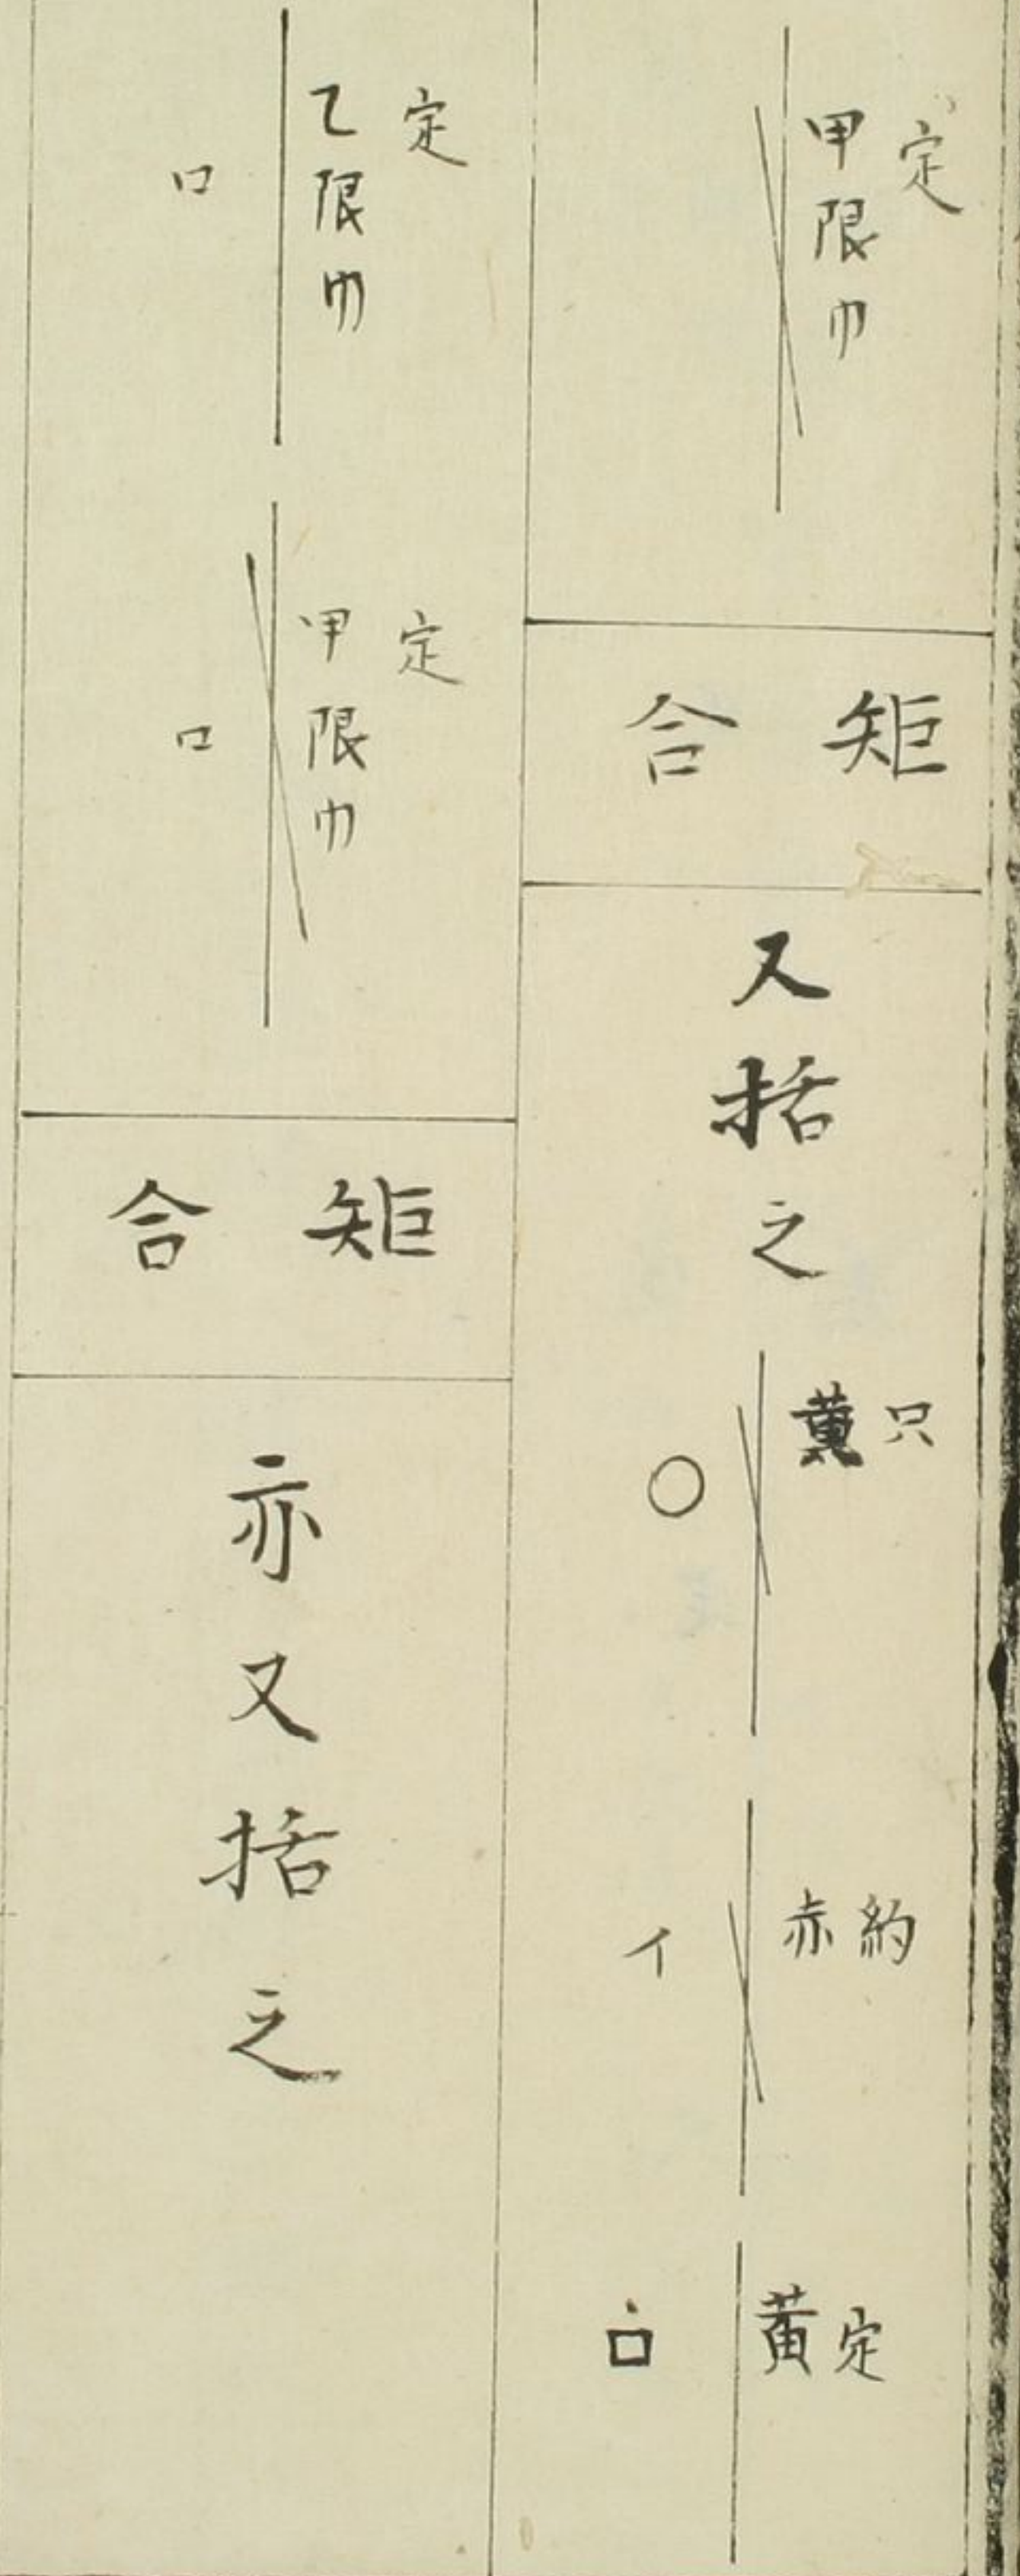 定
甲限巾
矩合
又括之
只
黄
○
約
赤
イ
定
黄
ロ
定
乙限巾
ロ
定
甲限巾
ロ
矩合
亦又括之